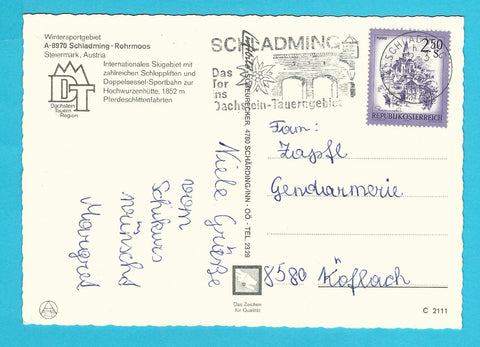 Wintersportgebiet
A-8970 Schladming - Rohrmoos
Steiermark, Austria
Internationales Skigebiet mit
zahlreichen Schleppliften und
Doppelsessel-Sportbahn zur
Hochwurzenhütte, 1852 m
Pferdeschlittenfahrten
DT
Dachstein
Tauern
Region
SCHLADMING
Das
Tor
ins
Dachstein-Tauerngebiet
2.50
REPUBLIK ÖSTERREICH
4780 SCHÄRDING/INN - OÖ. - TEL. 2329
Viele Grüße
vom
Schikurs
wünscht
Margret
Fam:
Zapfl
Gendarmerie
8580 Köflach
Das Zeichen
für Qualität
C 2111